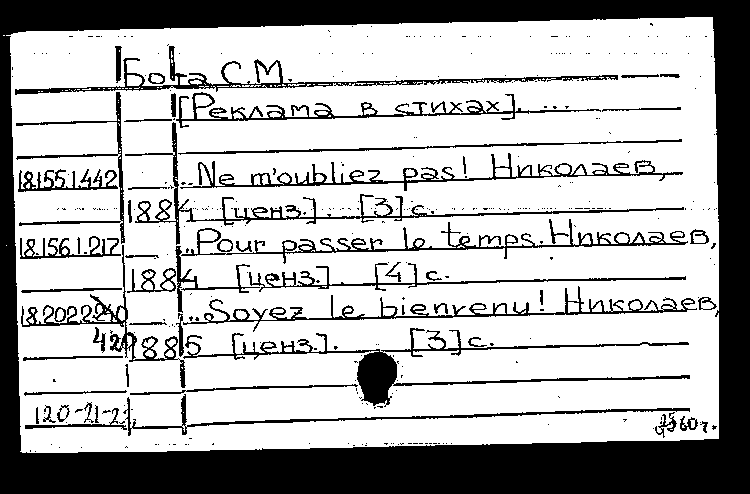 Бота, С.М.
[Реклама в стихах]. ...
18.155.1.442 ...Ne m'oubliez pas! Николаев,
1884 [ценз.]. [3]с.
18.156.1.217 ...Pour passer le temps. Николаев,
1884 [ценз.]. [4]с.
18.202.2. ...Soyez le bienvenu! Николаев,
420 1885 [ценз.]. [3]с.
120-21-2
60г.